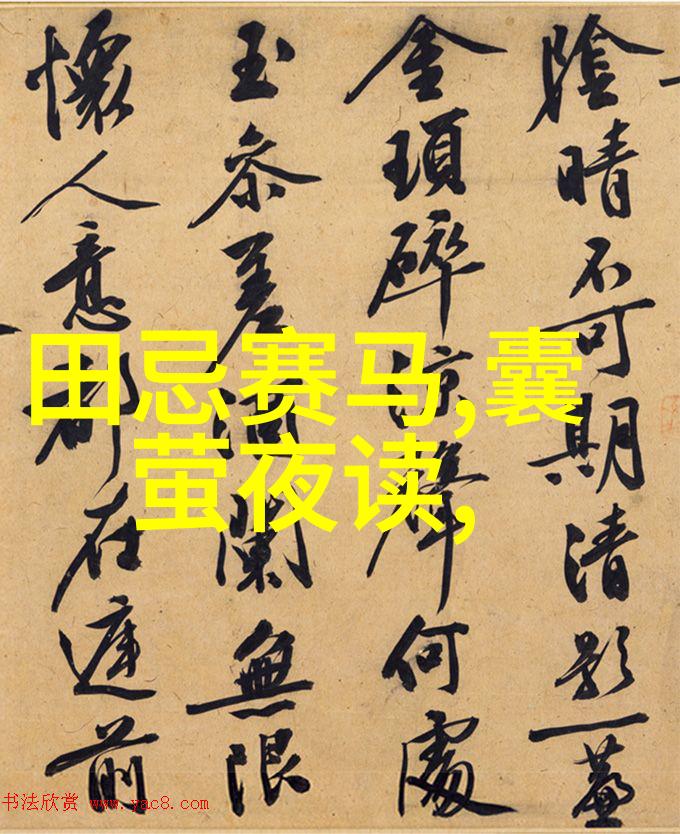 陰晴不可期清影一簾
金瑣碎涼聲何處
玉參差酒闌無限
懷人意都在庭前
田忌赛马,囊
萤夜读,
书法欣赏 www.yac8.com